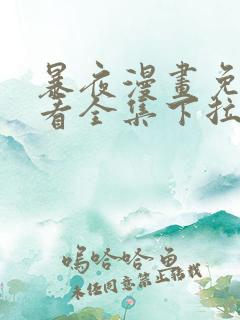 暴夜漫畫免
看全集下拉
嗚哈哈魚
未经同意禁止转载